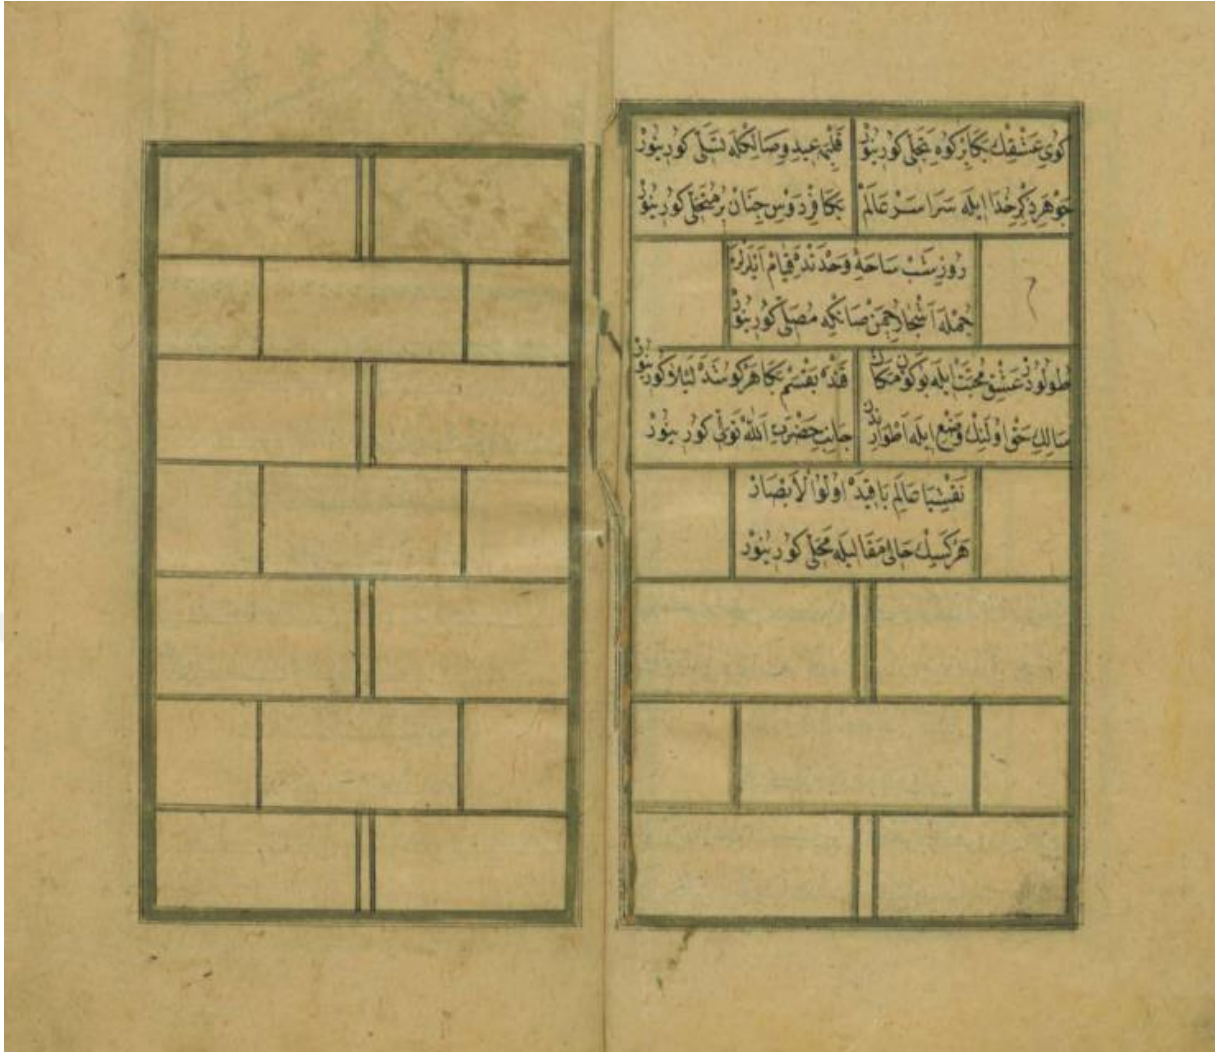 كوی عشقك بكا بر كوه تجلی كورینور قلبمه عید وصالكله تسلی كورینور
جوهر ذكر خدا ایله سراسر عالم بكا فردوس جنان بر متحلی كورینور
روز شب ساحه وحدتده قیام ایدنلره
جمله اشجار چمن صانكه مصلی كورینور
طولودر عشق محبتله بو كون مكان قنده بقسم بكا هر كوشده لیلا كورینور
سالك حق اولنك وضع ایله اطوارندن جانب حضرت الله تولی كورینور
نقشیا عالم باقیده اولو الابصار
هر كسك حالی مقالیله محلی كورینور